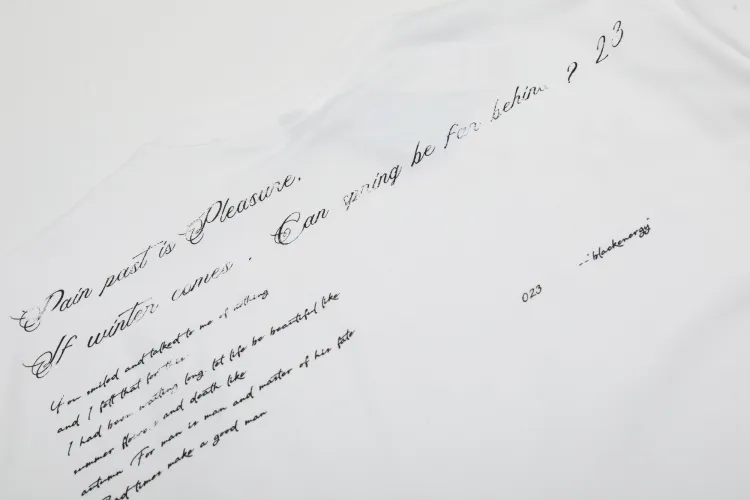 Pain past is Pleasure.
If winter comes . Can spring be far behind ? 23
You smiled and talked to me of nothing
and I felt that for this
I had been waiting long. let life be beautiful like
summer flowers and death like
autumn. For man is man and master of his fate
Bad times make a good man
023 --"blackenergy"